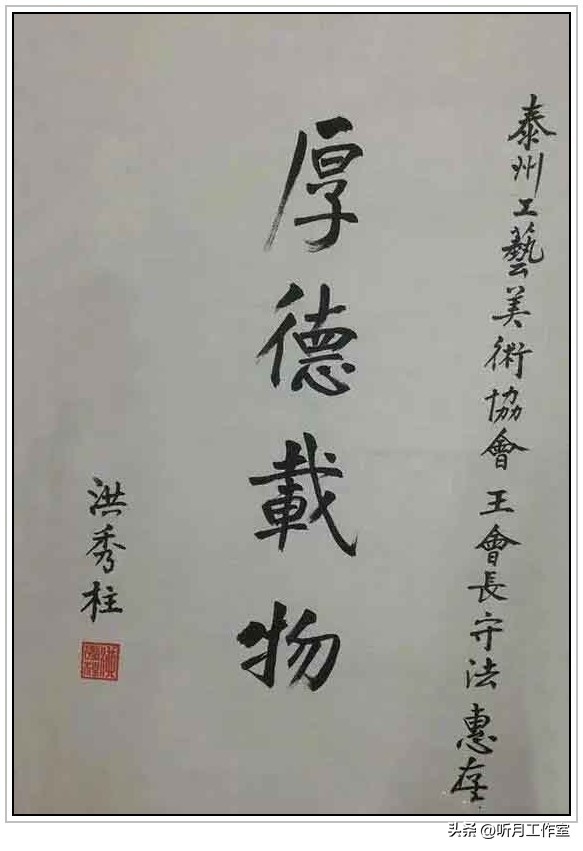 泰州工藝美術協會王會長守法惠存
厚德載物
洪秀柱
头条 @听月工作室